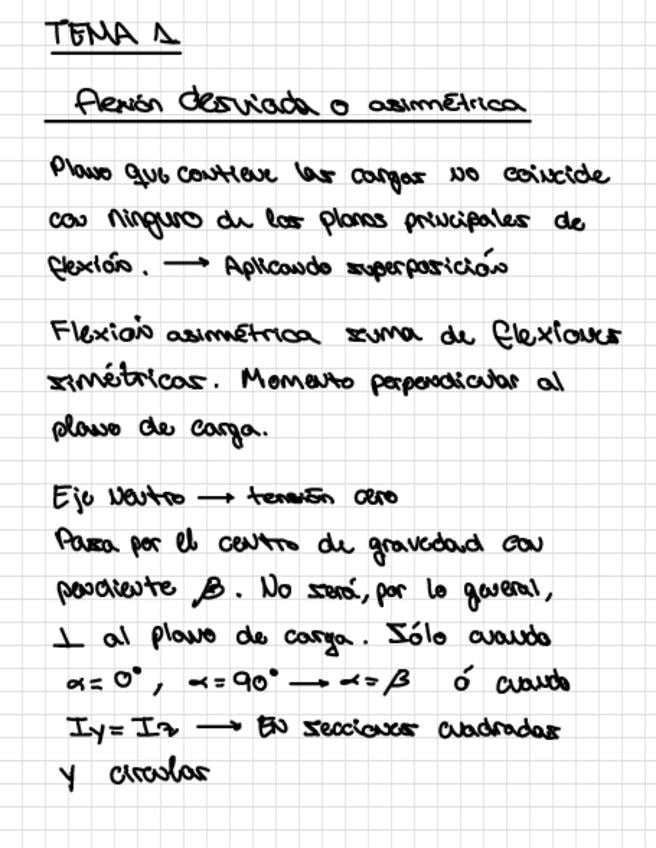 TEMA 1
flexión desviada o asimétrica
Plano que contiene las cargas no coincide
con ninguno de los planos principales de
flexión. → Aplicando superposición
Flexión asimétrica suma de flexiones
simétricas. Momento perpendicular al
plano de carga.
Eje Neutro → tensión cero
Pasa por el centro de gravedad con
pendiente β. No será, por lo general,
⊥ al plano de carga. Sólo cuando
α = 0°, α = 90° → α = β ó cuando
Iy = Iz → En secciones cuadradas
y circular